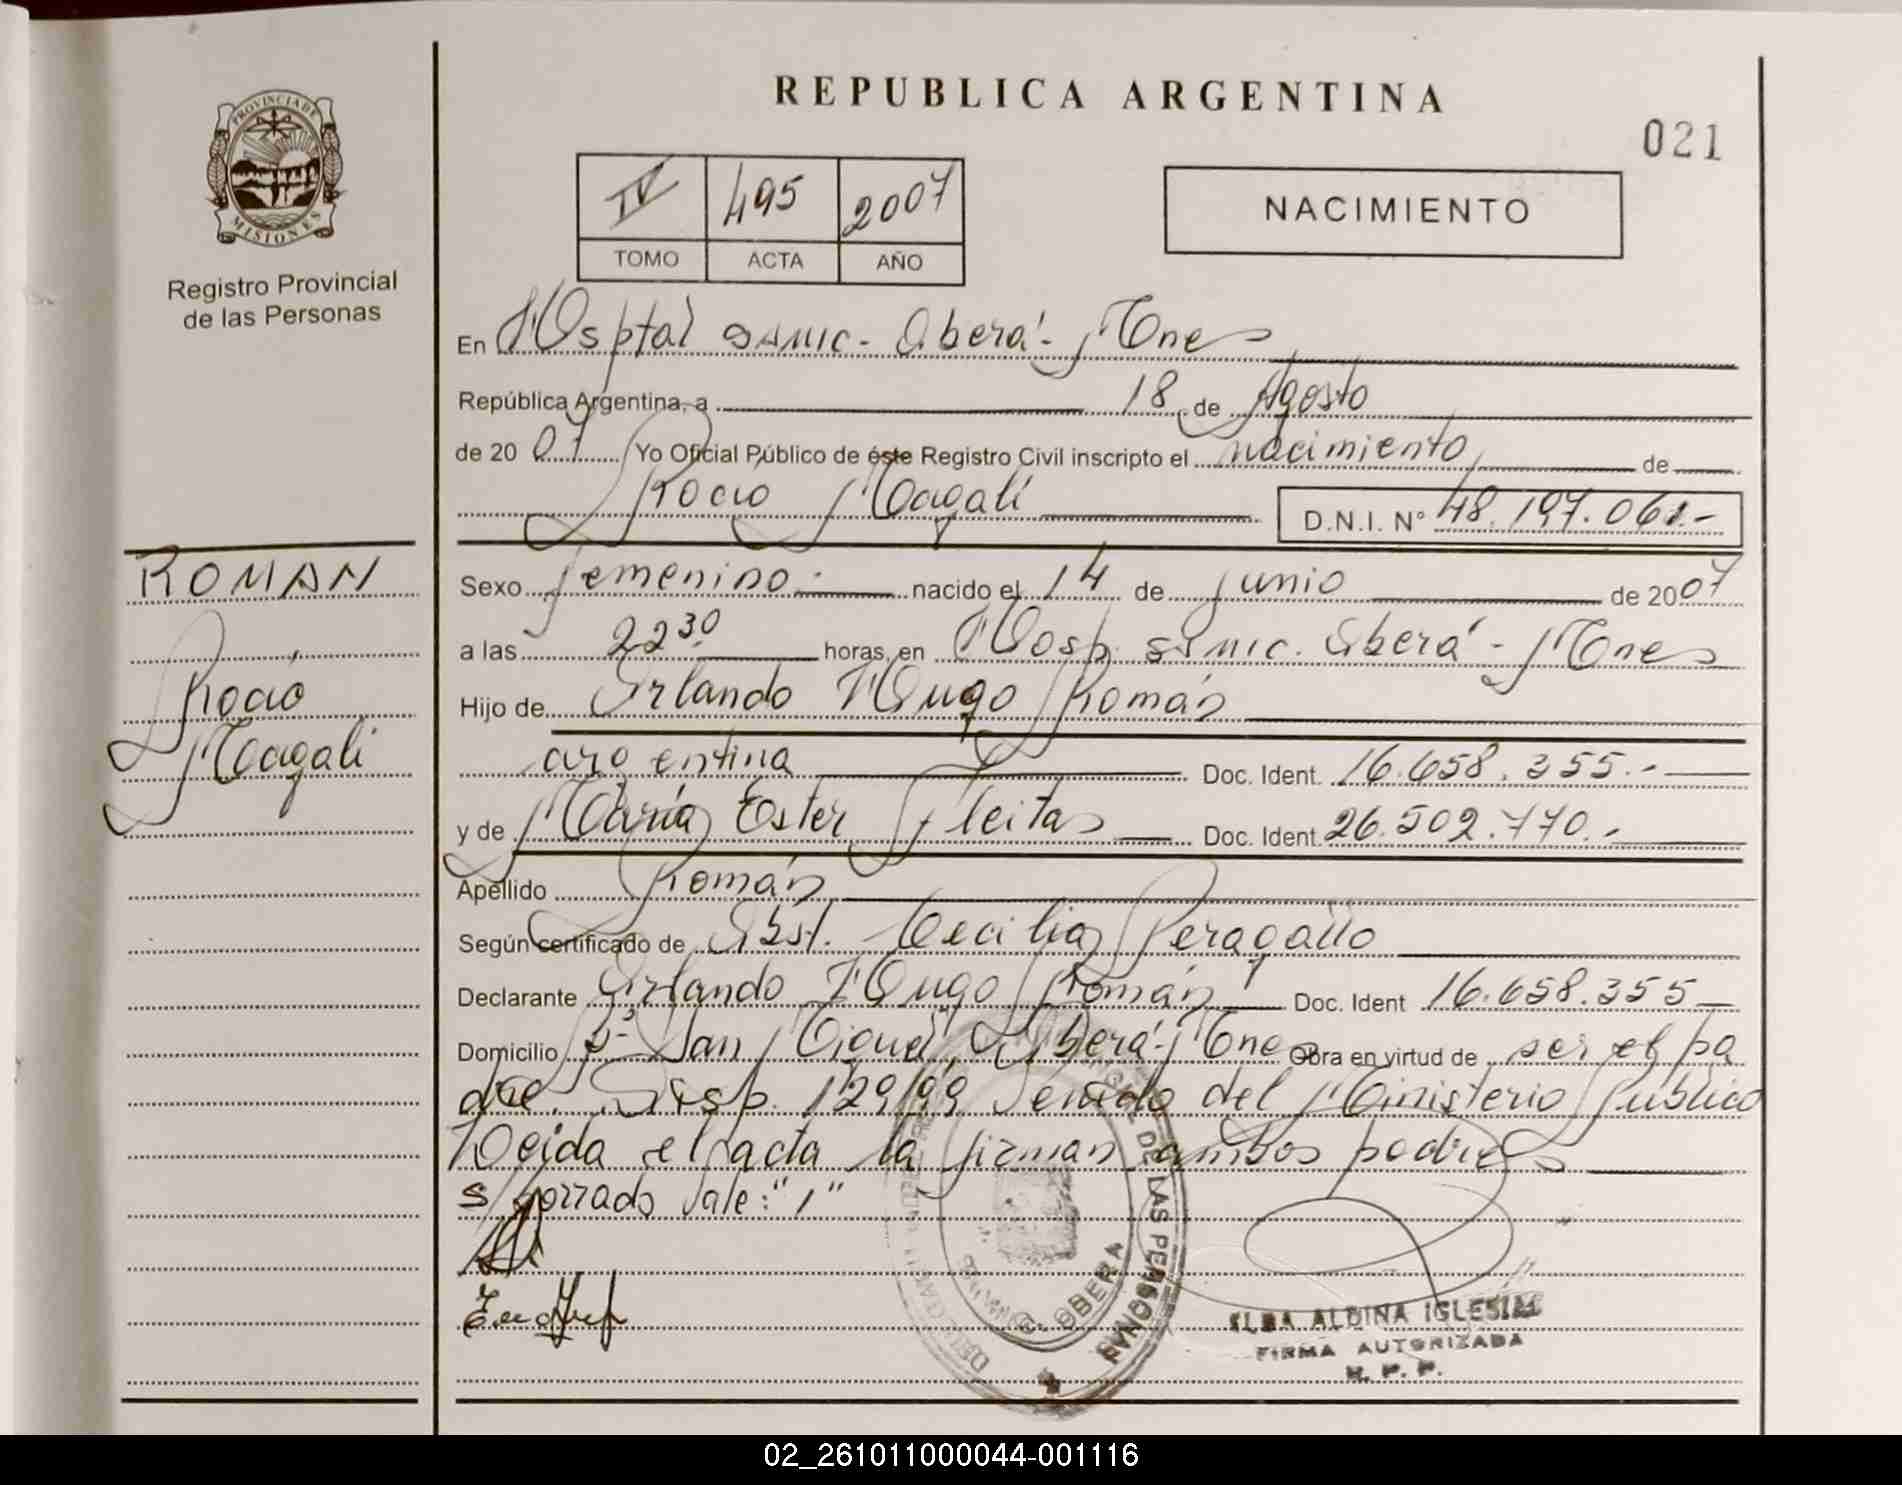 REPUBLICA ARGENTINA
021
PROVINCIA DE
MISIONES
Registro Provincial
de las Personas
IV 495 2007
TOMO ACTA AÑO
NACIMIENTO
En Hosptal SAMIC - Oberá - Mnes
República Argentina, a 18 de Agosto
de 2007 Yo Oficial Público de éste Registro Civil inscripto el nacimiento de
Rocio Magali D.N.I. N° 48.197.061.-
ROMAN
Rocio
Magali
Sexo femenino.- nacido el 14 de junio de 2007
a las 22 30 horas, en Hosp. SAMIC. Oberá - Mnes
Hijo de Orlando Hugo Román
argentina Doc. Ident. 16.658.355.-
y de María Ester Fleitas Doc. Ident. 26.502.770.-
Apellido Román
Según certificado de Obst. Cecilia Peragallo
Declarante Orlando Hugo Román Doc. Ident 16.658.355
Domicilio San Miguel, Oberá - Mne Obra en virtud de ser el pa
dre. Disp. 129/99 del Ministerio Publico
Leida el acta la firman ambos padres
S/ borrado Vale: "1"
DE LAS PERSONAS
OBERA
ELBA ALBINA IGLESIAS
FIRMA AUTORIZADA
R. P. P.
02_261011000044-001116